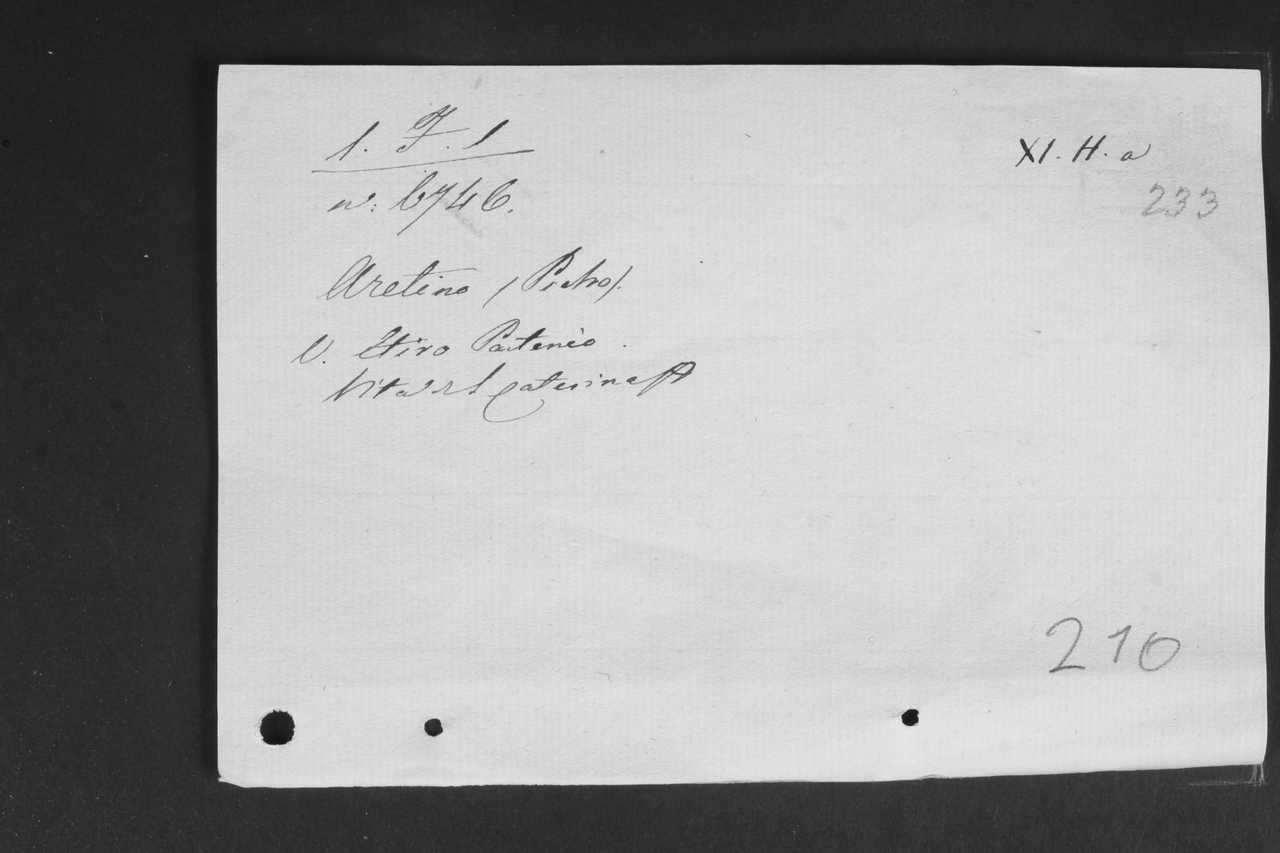 1. F. 1
XI. H. a
233
n°: 6746.
Aretino (Pietro).
V. Etiro Partenio.
Vita Caterina
210